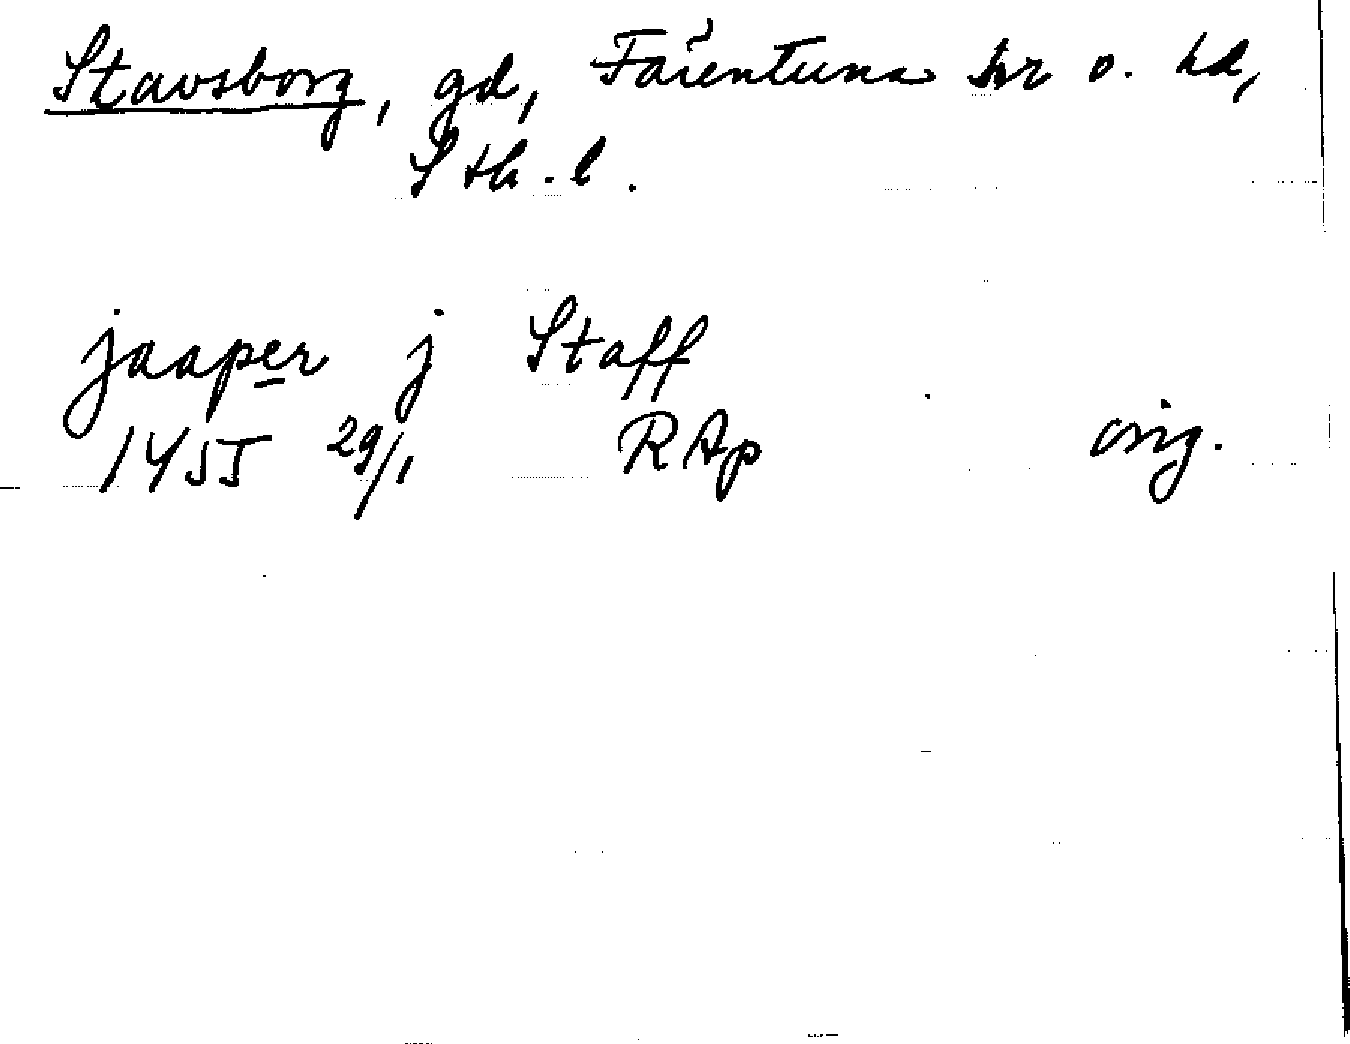 Stavsborg, gd, Färentuna sn o. hd,
Sth. l.
jaaper j Staff
1455 29/1 RAp orig.